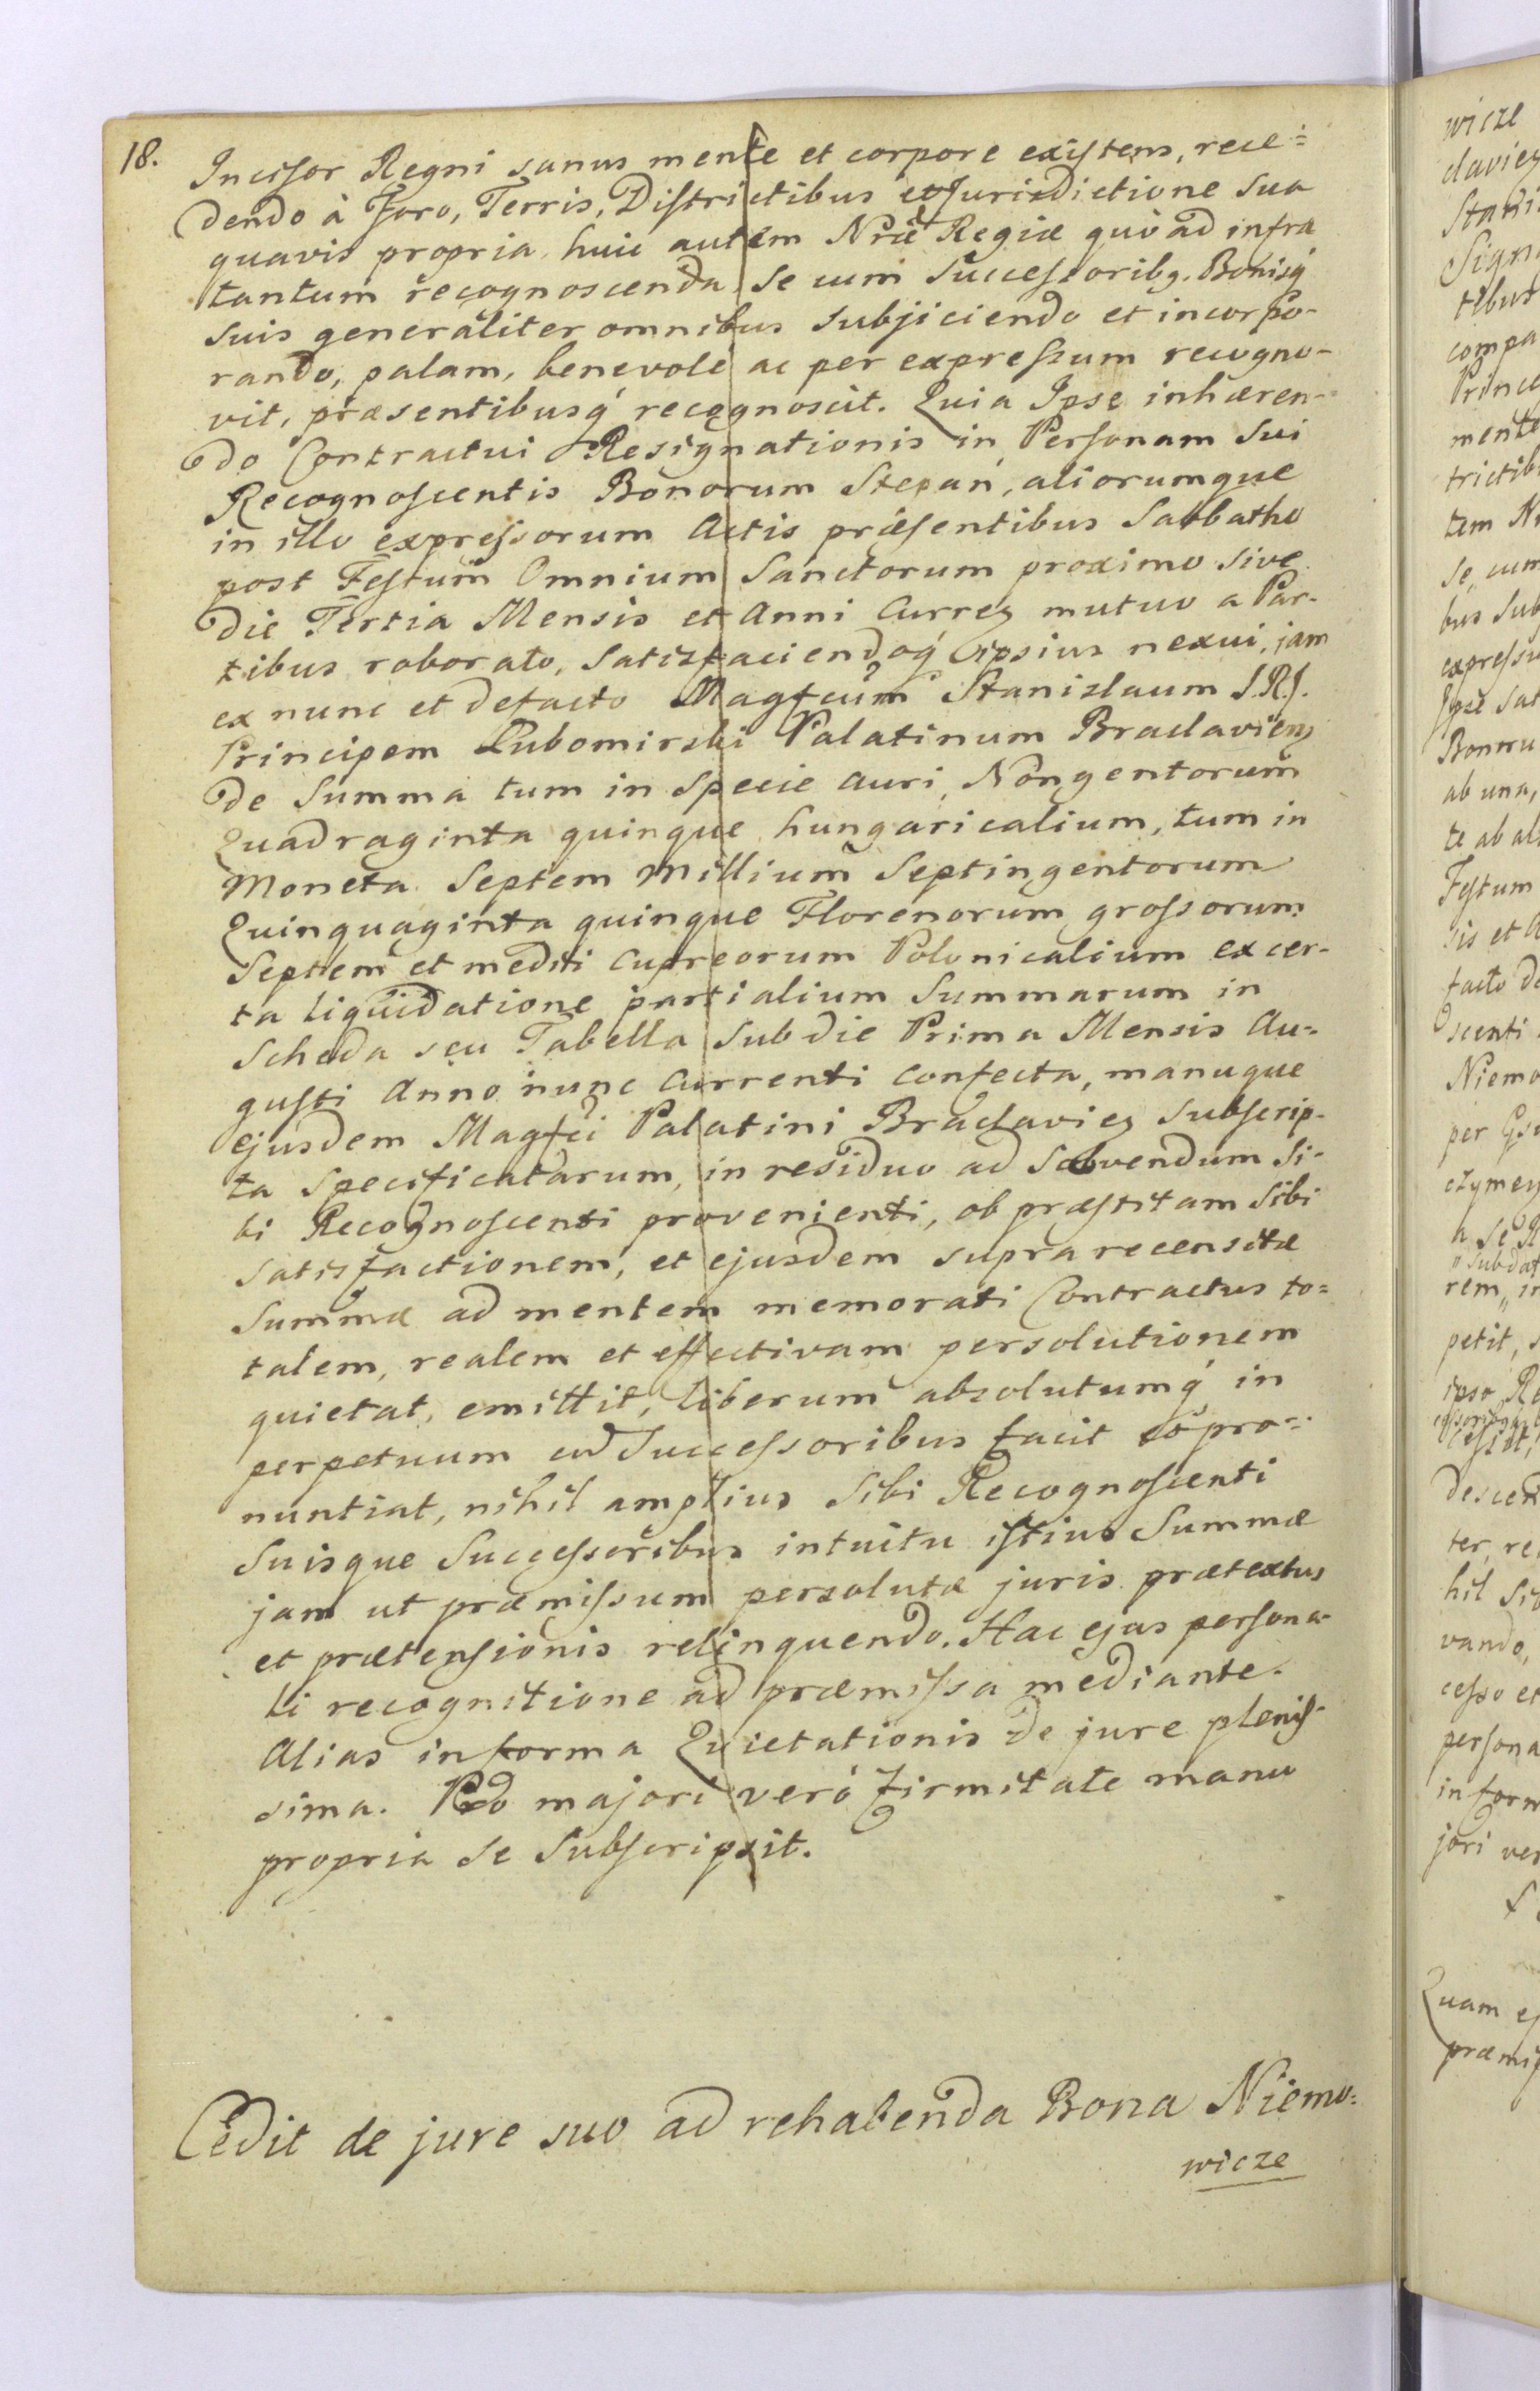 18.
Incisor Regni sanus mente et corpore existens, rece=
dendo à Foro, Terris, Districtibus et Jurisdictione sua
quavis propria, huic autem Nrae Regiae quò ad infra
tantum recognoscenda se cum Successoribq. Bonisq́
suis generaliter omnibus subjiciendo et incorpo-
rando, palam, benevolè ac per expressum recogno-
vit, praesentibusq́ recognoscit. Quia Ipse inhaeren-
do Contractui Resignationis in Personam sui
Recognoscentis Bonorum Stepań, aliorumque
in illo expressorum Actis praesentibus Sabbatho
post Festum Omnium Sanctorum proximo sive
die Tertia Mensis et Anni Curren mutuo a Par-
tibus roborato, satisfaciendoq́ ipsius nexui, jam
ex nunc et defacto Magfcum Stanislaum S.R.J.
Principem Lubomirski Palatinum Braclavien
de Summa tum in specie auri, Nongentorum
Quadraginta quinque hungaricalium, tum in
Moneta Septem Millium Septingentorum
Quinquaginta quinque Florenorum grossorum
Septem et medii cupreorum Polonicalium ex cer-
ta liquidatione partialium Summarum in
Scheda seu Tabella sub die Prima Mensis Au-
gusti Anno nunc Currenti confecta, manuque
ejusdem Magfci Palatini Braclavien subscrip-
ta specificatarum, in residuo ad solvendum si-
bi Recognoscenti provenienti, ob praestitam sibi
satisfactionem, et ejusdem supra recensitae
Summae ad mentem memorati Contractus to=
talem, realem et effectivam persolutionem
quietat, emittit, liberum absolutumq́ in
perpetuum cum Successoribus facit et pro=
nuntiat, nihil amplius sibi Recognoscenti
suisque Successoribus intuitu istius Summae
jam ut praemissum persolutae juris praetextus
et praetensionis relinquendo. Hac ejus persona-
li recognitione ad praemissa mediante.
Alias in forma Quietationis de jure plenis-
sima. Pro majori verò firmitate manu
propria se subscripsit.
Cedit de jure suo ad rehabenda Bona Niemo=
wicze
wicze
Stani
tibus
compa
Princi
mente
trictib
tem
se, cum
bus sub
expressu
Ipse sat
Bonoru
ab una,
te ab al
Festum
sis et A
facto de
scenti
Niemo
per
petit,
ipso Re
descen
ter, re
hil si
vando,
cesso et
persona
in form
jori ver
Quam ej
praemis